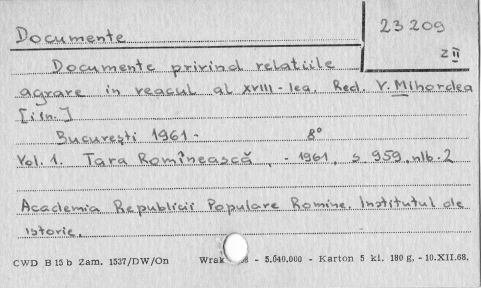 Documente
23209
z II
Documente privind relatiile
agrare in veacul al XVIII-lea. Red. V. Mihordea
[i in.]
București 1961- 8°
Vol. 1. Tara Romînească, - 1961, s 959, nlb. 2
Academia Republicii Populare Romine. Institutul de
istorie.
CWD B 15 b Zam. 1537/DW/On Wrak - 5.040.000 - Karton 5 kl. 180 g. - 10.XII.68.